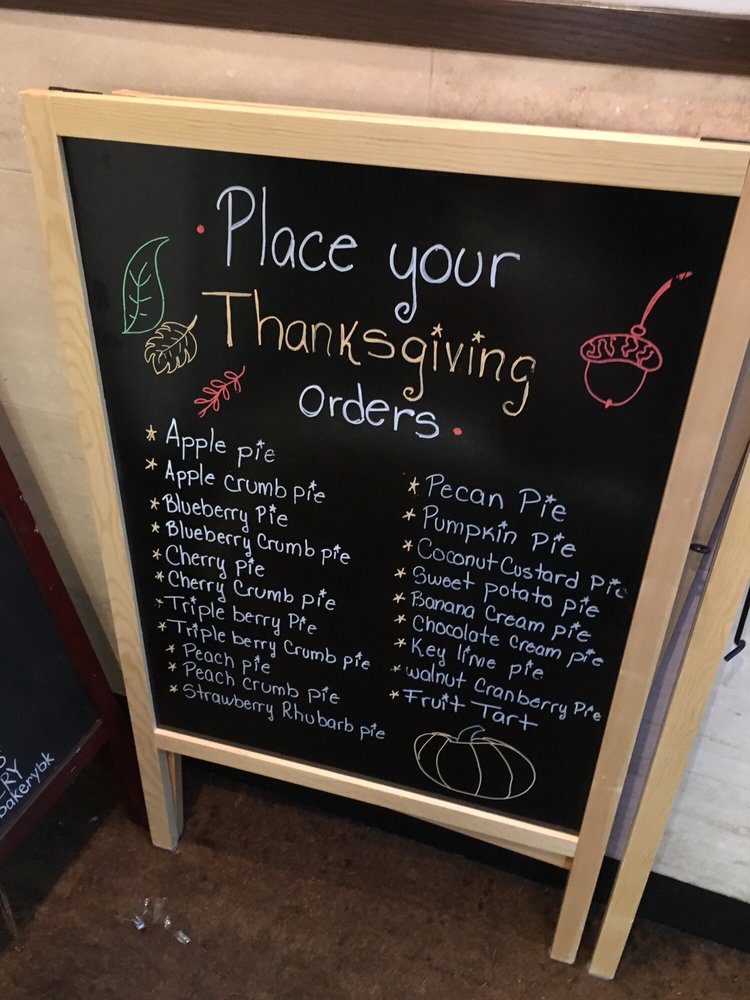 Place your
Thanksgiving
orders.
* Apple pie
* Apple crumb pie
* Blueberry Pie
* Blueberry Crumb pie
* Cherry pie
* Cherry Crumb pie
* Triple berry Pie
* Triple berry Crumb pie
* Peach pie
* Peach crumb pie
* Strawberry Rhubarb pie
* Pecan Pie
* Pumpkin Pie
* Coconut Custard Pie
* Sweet potato pie
* Banana Cream pie
* Chocolate cream pie
* Key lime pie
* walnut Cranberry Pie
* Fruit Tart
RY
bakerybk